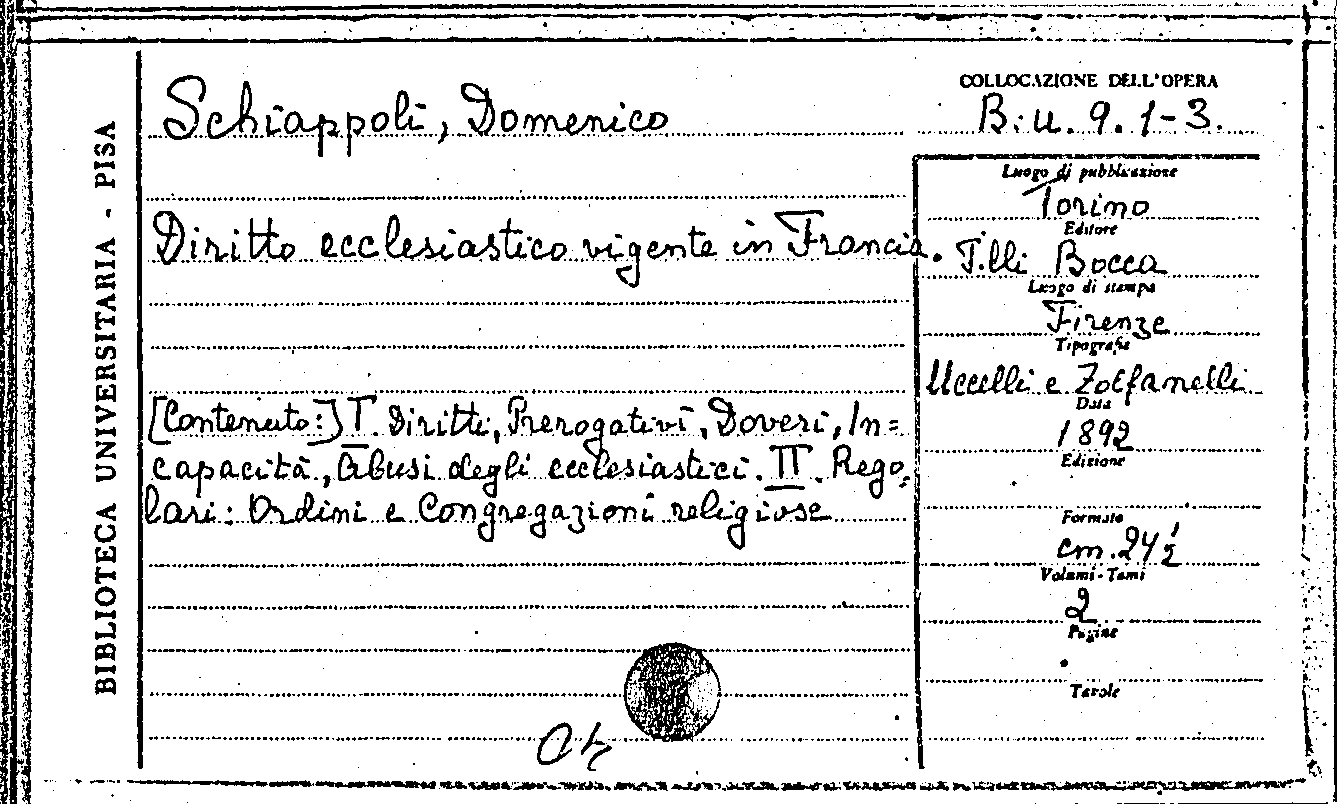 BIBLIOTECA UNIVERSITARIA - PISA
Schiappoli, Domenico
Diritto ecclesiastico vigente in Francia.
[Contenuto:] I. Diritti, Prerogativi, Doveri, In=
capacità, Abusi degli ecclesiastici. II. Rego=
lari: Ordini e Congregazioni religiose
COLLOCAZIONE DELL'OPERA
B. u. 9. 1-3.
Luogo di pubblicazione
Torino
Editore
F.lli Bocca
Luogo di stampa
Firenze
Tipografia
Uccelli e Zolfanelli
Data
1892
Edizione
Formato
cm. 24½
Volumi - Tomi
2
Pagine
Tavole